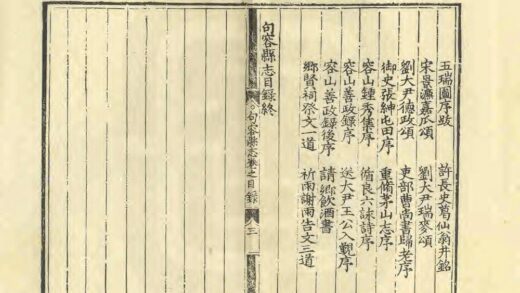 五瑞圖序跋　許長史葛仙翁井銘
宋景濂嘉瓜頌　劉大尹瑞麥頌
劉大尹德政頌　吏部曹尚書歸老序
御史張紳屯田序　重脩茅山志序
容山鍾秀集序　脩良六詠詩序
容山善政錄序　送大尹王公入覲序
容山善政錄後序　請鄉飲酒書
鄉賢祠祭文一道　祈雨謝雨告文三道
句容縣志目錄終
句容縣志卷之目錄　三